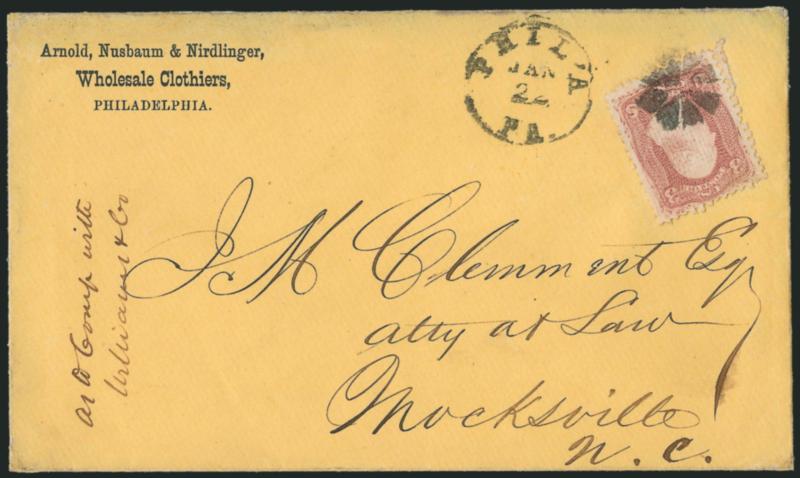 Arnold, Nusbaum & Nirdlinger,
Wholesale Clothiers,
PHILADELPHIA.
PHIL'A
JAN
22
PA.
J M Clemment Esq
atty at Law
Mocksville
N. C.
Comp with
Williams & Co